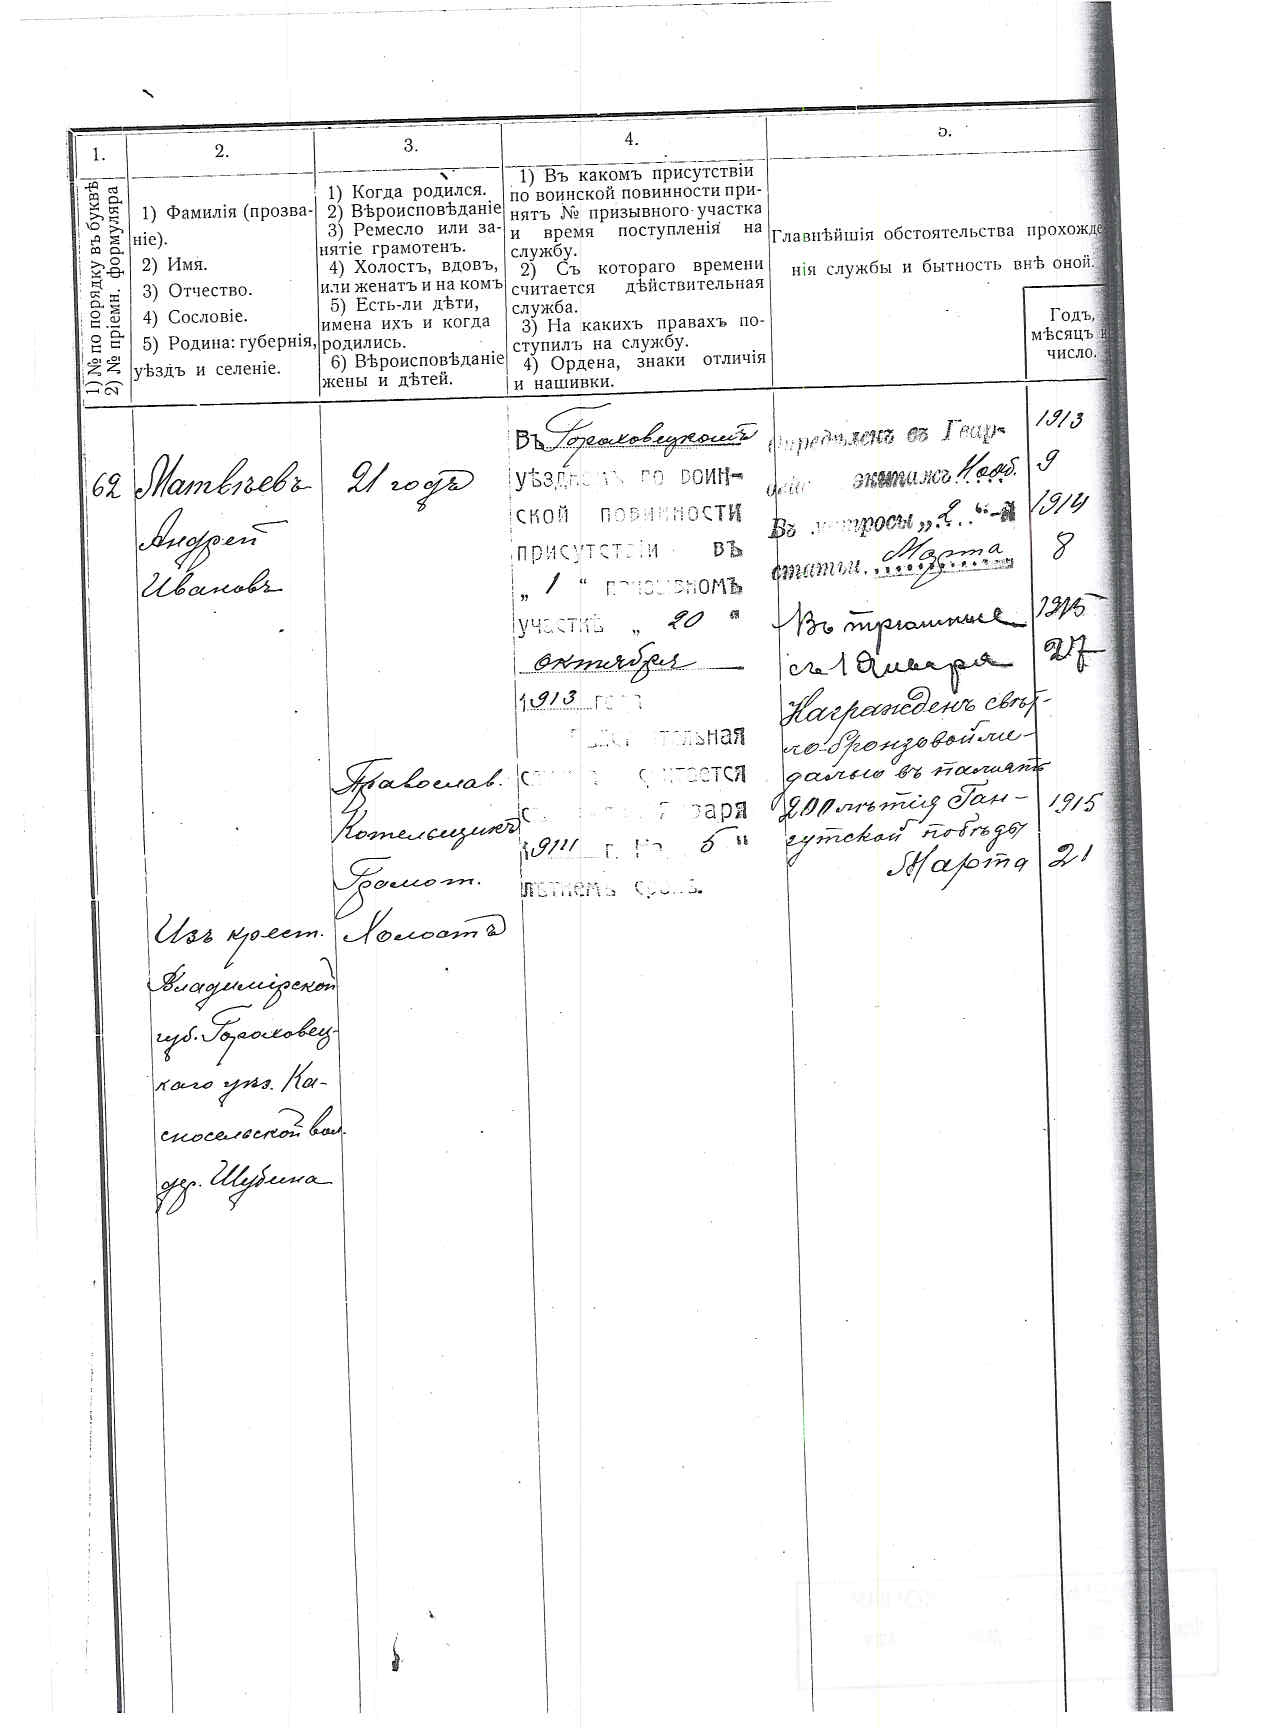 1.
1) № по порядку въ буквѣ
2) № пріемн. формуляра
2.
1) Фамилія (прозва-
ніе).
2) Имя.
3) Отчество.
4) Сословіе.
5) Родина: губернія,
уѣздъ и селеніе.
3.
1) Когда родился.
2) Вѣроисповѣданіе
3) Ремесло или за-
нятіе грамотенъ.
4) Холостъ, вдовъ,
или женатъ и на комъ
5) Есть-ли дѣти,
имена ихъ и когда
родились.
6) Вѣроисповѣданіе
жены и дѣтей.
4.
1) Въ какомъ присутствіи
по воинской повинности при-
нятъ № призывного участка
и время поступленія на
службу.
2) Съ котораго времени
считается дѣйствительная
служба.
3) На какихъ правахъ по-
ступилъ на службу.
4) Ордена, знаки отличія
и нашивки.
5.
Главнѣйшія обстоятельства прохожде-
нія службы и бытность внѣ оной.
Годъ,
мѣсяцъ и
число.
62
Матвѣевъ
Андрей
Ивановъ
Изъ крест.
Владимірской
губ. Гороховец-
каго уѣз. Ка-
сносельской вол.
дер. Шубина
21 годъ
Православ.
Котельщикъ
Грамот.
Холостъ
Въ Гороховецкомъ
уѣздномъ по воин-
ской повинности
присутствіи въ
„ 1 “ призывномъ
участкѣ „ 20 “
октября
1913 года
Дѣйствительная
служба считается
съ 1 Января
1914 г. На 5 “
лѣтнемъ срокѣ.
Опредѣленъ въ Гвар-
экипажъ Нояб.
Въ матросы „2“-й
статьи Марта
Въ
съ 1 Января
Награжденъ свѣт-
ло-бронзовой ме-
далью въ память
200 лѣтія Ган-
гутской побѣды
Марта
1913
9
1914
8
1915
27
1915
21